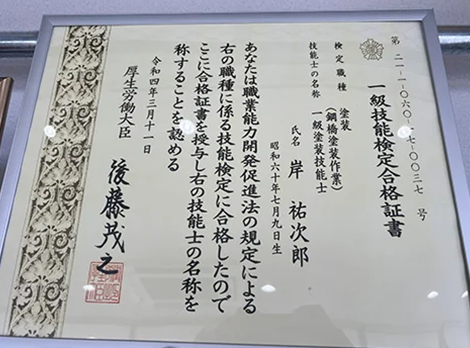 第二一-一-〇六〇-一七-〇〇三七号
一級技能検定合格証書
検定職種 塗装
(鋼橋塗装作業)
技能士の名称 一級塗装技能士
氏名 岸 祐次郎
昭和六十年七月九日生
あなたは職業能力開発促進法の規定による
右の職種に係る技能検定に合格したので
ここに合格証書を授与し右の技能士の名称を
称することを認める
令和四年三月十一日
厚生労働大臣 後藤茂之